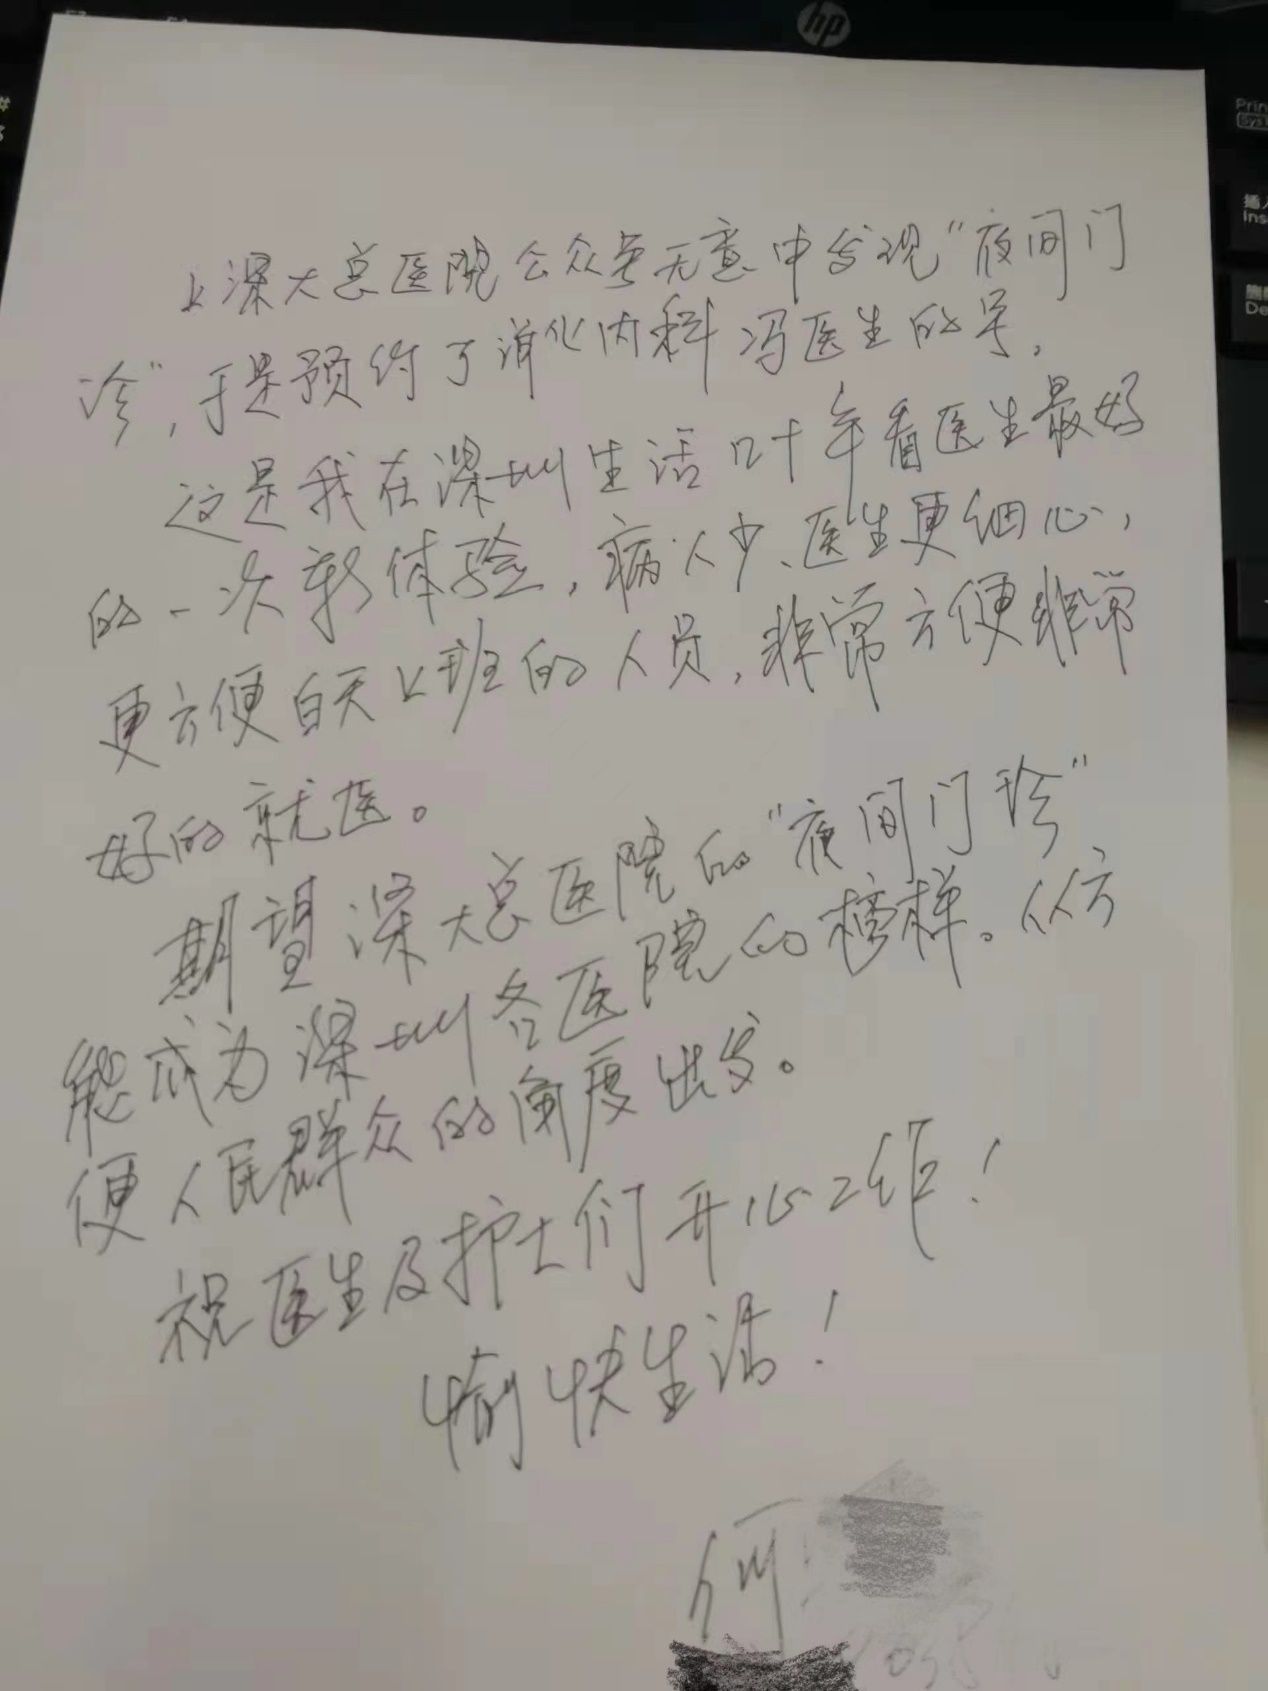 hp
上深大总医院公众号无意中发现“夜间门
诊”,于是预约了消化内科冯医生的号。
这是我在深圳生活叶年看医生最好
的一次新体验,病人少、医生更细心,
更方便白天上班的人员,非常方便非常
好的就医。
期望深大总医院的“夜间门诊”
能成为深圳各医院的榜样。从方
便人民群众的角度出发。
祝医生及护士们开心工作!
愉快生活!
何